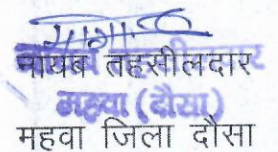 नायब तहसीलदार
महवा (दौसा)
महवा जिला दौसा